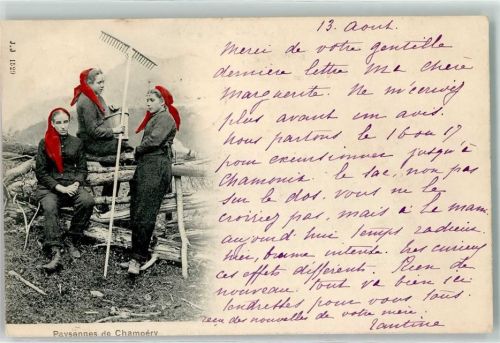 J. J. 1529
Paysannes de Champéry
13. Aout.
Merci de votre gentille
dernière lettre Ma chère
Marguerite. Ne m'écrivez
plus avant un avis.
Nous partons le 16 ou 17
pour excursionner jusqu'à
Chamonix. le sac, non pas
sur le dos, vous ne le
croiriez pas, mais à la main.
aujourd'hui temps radieux
hier, brume intense. très curieux
ces effets différents. Rien de
nouveau. tout va bien ici
tendresses pour vous tous.
reçu des nouvelles de votre mère.